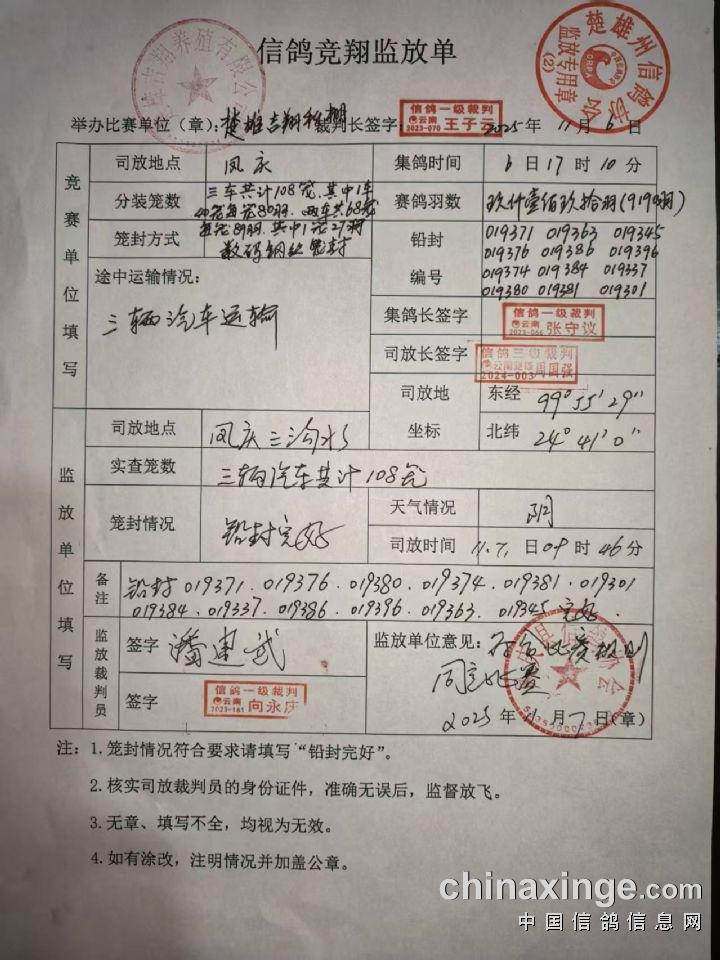 信鸽竞翔监放单
楚雄州信鸽协会
监放专用章
(2)
举办比赛单位（章）：楚雄吉翔 裁判长签字：信鸽一级裁判 云南 2023-070 王子云 2025年11月6日
竞赛单位填写
司放地点 凤庆 集鸽时间 6日17时10分
分装笼数 三车共计108笼，其中1车40笼每笼80羽，两车共68笼每笼89羽，其中1笼27羽
赛鸽羽数 玖仟壹佰玖拾羽(9190羽)
笼封方式 数码钢丝笼封
铅封编号 019371 019363 019345
019376 019386 019396
019374 019384 019337
019380 019381 019301
途中运输情况：
三辆汽车运输
集鸽长签字 信鸽一级裁判 云南 2023-066 张守议
司放长签字 信鸽三级裁判 云南楚雄 2024-003 周国强
司放地坐标 东经 99°55′29″
北纬 24°41′0″
监放单位填写
司放地点 凤庆三沟水
实查笼数 三辆汽车共计108笼
笼封情况 铅封完好
天气情况 阴
司放时间 11.7.日09时46分
备注 铅封019371．019376．019380．019374．019381．019301
019384．019337．019386．019396．019363．019345完好．
监放裁判员
签字 潘建武
签字 信鸽一级裁判 云南 2023-181 向永庆
监放单位意见：符合比赛规则
同意比赛
2025年11月7日(章)
注：1.笼封情况符合要求请填写“铅封完好”。
2.核实司放裁判员的身份证件，准确无误后，监督放飞。
3.无章、填写不全，均视为无效。
4.如有涂改，注明情况并加盖公章。
chinaxinge.com
中国信鸽信息网